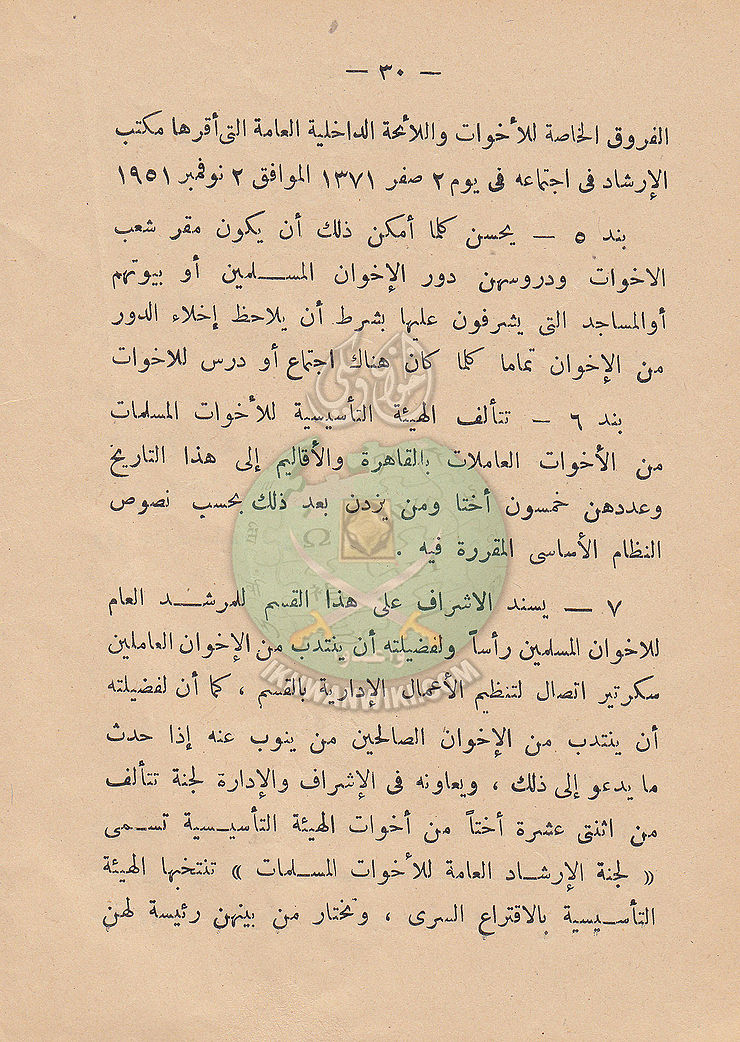 — ٣٠ —
الفروق الخاصة للأخوات واللائحة الداخلية العامة التى أقرها مكتب
الإرشاد فى اجتماعه فى يوم ٢ صفر ١٣٧١ الموافق ٢ نوفمبر ١٩٥١
بند ٥ — يحسن كلما أمكن ذلك أن يكون مقر شعب
الاخوات ودروسهن دور الإخوان المسلمين أو بيوتهم
أو المساجد التى يشرفون عليها بشرط أن يلاحظ إخلاء الدور
من الإخوان تماما كلما كان هناك اجتماع أو درس للاخوات
بند ٦ — تتألف الهيئة التأسيسية للأخوات المسلمات
من الأخوات العاملات بالقاهرة والأقاليم إلى هذا التاريخ
وعددهن خمسون أختا ومن يزدن بعد ذلك بحسب نصوص
النظام الأساسى المقررة فيه .
٧ — يسند الاشراف على هذا القسم للمرشد العام
للاخوان المسلمين رأساً ولفضيلته أن ينتدب من الإخوان العاملين
سكرتير اتصال لتنظيم الأعمال الإدارية بالقسم ، كما أن لفضيلته
أن ينتدب من الإخوان الصالحين من ينوب عنه إذا حدث
ما يدعو إلى ذلك ، ويعاونه فى الإشراف والإدارة لجنة تتألف
من اثنتى عشرة أختاً من أخوات الهيئة التأسيسية تسمى
« لجنة الإرشاد العامة للأخوات المسلمات » تنتخبها الهيئة
التأسيسية بالاقتراع السرى ، وتختار من بينهن رئيسة لهن
IKHWANWIKI.COM